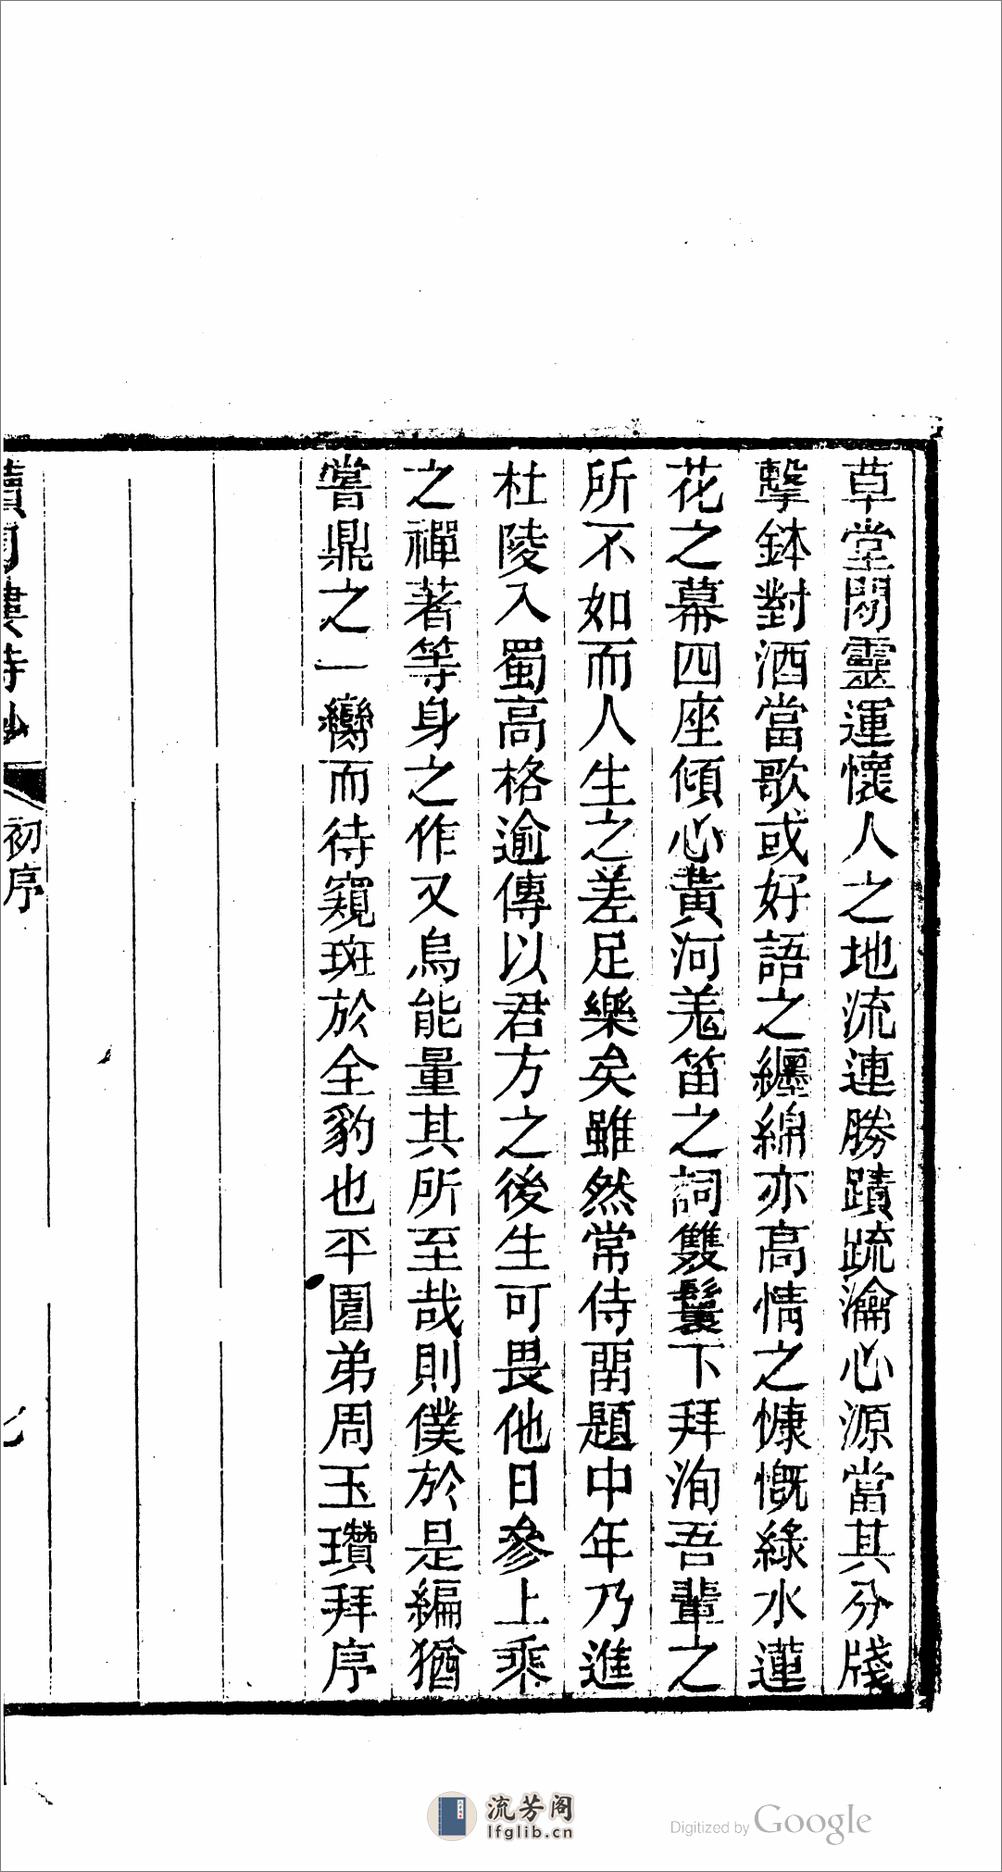 草堂闢靈運懷人之地流連勝蹟疏瀹心源當其分牋
擊鉢對酒當歌或好語之纏綿亦高情之慷慨綠水蓮
花之幕四座傾心黃河羌笛之詞雙鬟下拜洵吾輩之
所不如而人生之差足樂矣雖然常侍留題中年乃進
杜陵入蜀高格逾傳以君方之後生可畏他日參上乘
之禪著等身之作又烏能量其所至哉則僕於是編猶
嘗鼎之一臠而待窺斑於全豹也平園弟周玉瓚拜序
初序
流芳阁
lfglib.cn
Digitized by Google